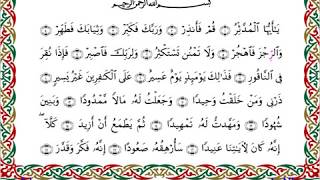 بسم الله الرحمن الرحيم
يَٰٓأَيُّهَا ٱلْمُدَّثِّرُ ۝ قُمْ فَأَنذِرْ ۝ وَرَبَّكَ فَكَبِّرْ ۝ وَثِيَابَكَ فَطَهِّرْ ۝
وَٱلرُّجْزَ فَٱهْجُرْ ۝ وَلَا تَمْنُن تَسْتَكْثِرُ ۝ وَلِرَبِّكَ فَٱصْبِرْ ۝ فَإِذَا نُقِرَ
فِى ٱلنَّاقُورِ ۝ فَذَٰلِكَ يَوْمَئِذٍ يَوْمٌ عَسِيرٌ ۝ عَلَى ٱلْكَٰفِرِينَ غَيْرُ يَسِيرٍ ۝
ذَرْنِى وَمَنْ خَلَقْتُ وَحِيدًا ۝ وَجَعَلْتُ لَهُۥ مَالًا مَّمْدُودًا ۝ وَبَنِينَ
شُهُودًا ۝ وَمَهَّدتُّ لَهُۥ تَمْهِيدًا ۝ ثُمَّ يَطْمَعُ أَنْ أَزِيدَ ۝ كَلَّآ
إِنَّهُۥ كَانَ لِـَٔايَٰتِنَا عَنِيدًا ۝ سَأُرْهِقُهُۥ صَعُودًا ۝ إِنَّهُۥ فَكَّرَ وَقَدَّرَ ۝